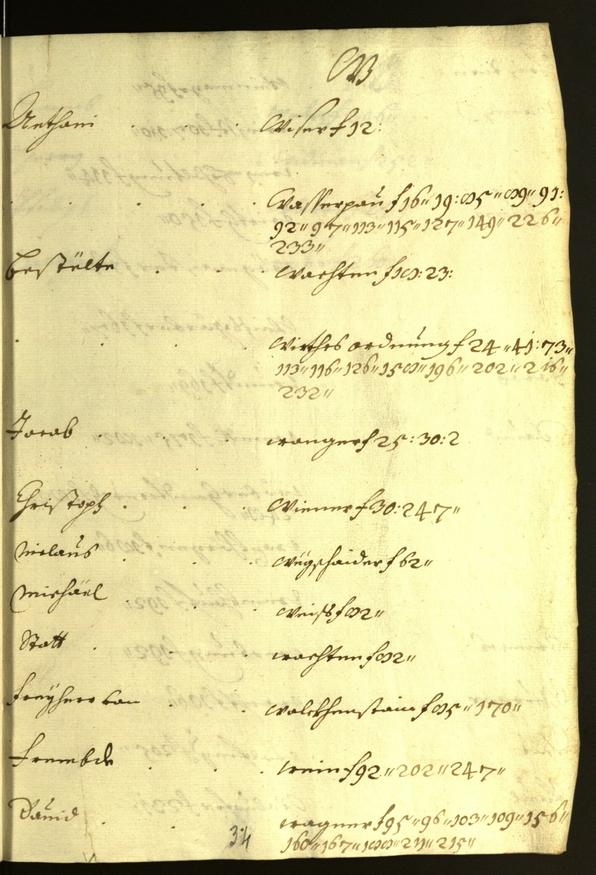 W
Anthoni Wiser f 12:
Wasserpau f 16 " 19: 85 " 89 " 91:
92 " 97 " 113 " 115 " 127 " 149 " 226 "
233 "
Bestälte Wachten f 18: 23:
Wirths ordnung f 24 " 41: 73 "
113 " 116 " 126 " 158 " 196 " 202 " 216 "
232 "
Jacob wanger f 25: 30: 2
Christoph Wiener f 30: 247 "
Niclaus Wegschaider f 62 "
Michäel Weiss f 82 "
Statt wachten f 82 "
Freyherr von Wolckhenstain f 85 " 170 "
Frembde wein f 92 " 202 " 247 "
Dauid wagner f 95 " 96 " 103 " 109 " 156 "
160 " 167 " 188 " 211 " 215 "
34